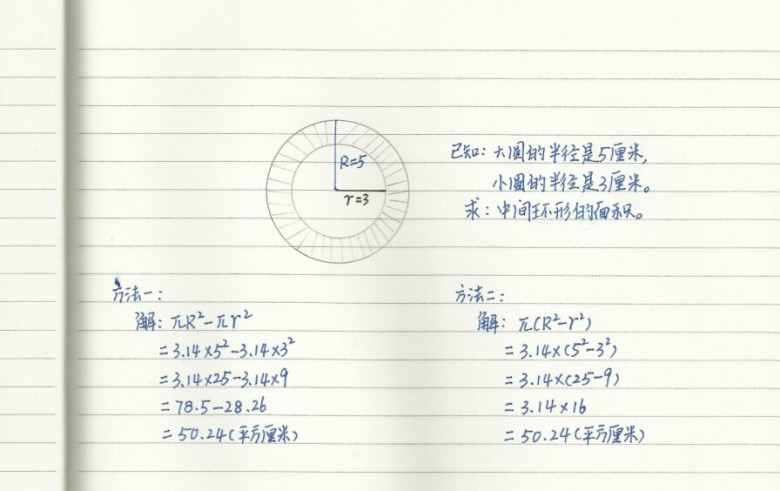 R=5
r=3
已知：大圆的半径是5厘米，
小圆的半径是3厘米。
求：中间环形的面积。
方法一：
解：πR²-πr²
=3.14×5²-3.14×3²
=3.14×25-3.14×9
=78.5-28.26
=50.24(平方厘米)
方法二：
解：π(R²-r²)
=3.14×(5²-3²)
=3.14×(25-9)
=3.14×16
=50.24(平方厘米)